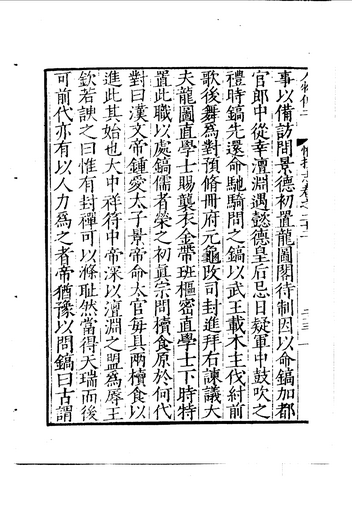 事以備訪問景德初置龍圖閣待制因以命鎬加都
官郎中從幸澶淵遇懿德皇后忌日疑軍中鼓吹之
禮時鎬先還命馳騎問之鎬以武王載木主伐紂前
歌後舞為對預脩冊府元龜改司封進拜右諫議大
夫龍圖直學士賜襲衣金帶班樞密直學士下時特
置此職以處鎬儒者榮之初眞宗問櫝食原於何代
對曰漢文帝鍾愛太子景帝命太官每具兩櫝食以
進此其始也大中祥符中帝深以澶淵之盟為辱王
欽若諛之曰惟有封禪可以滌恥然當得天瑞而後
可前代亦有以人力為之者帝猶豫以問鎬曰古謂